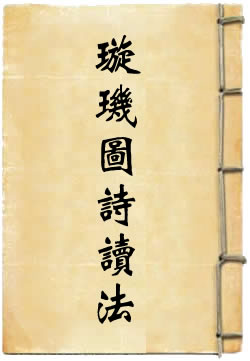 璇璣圖詩讀法